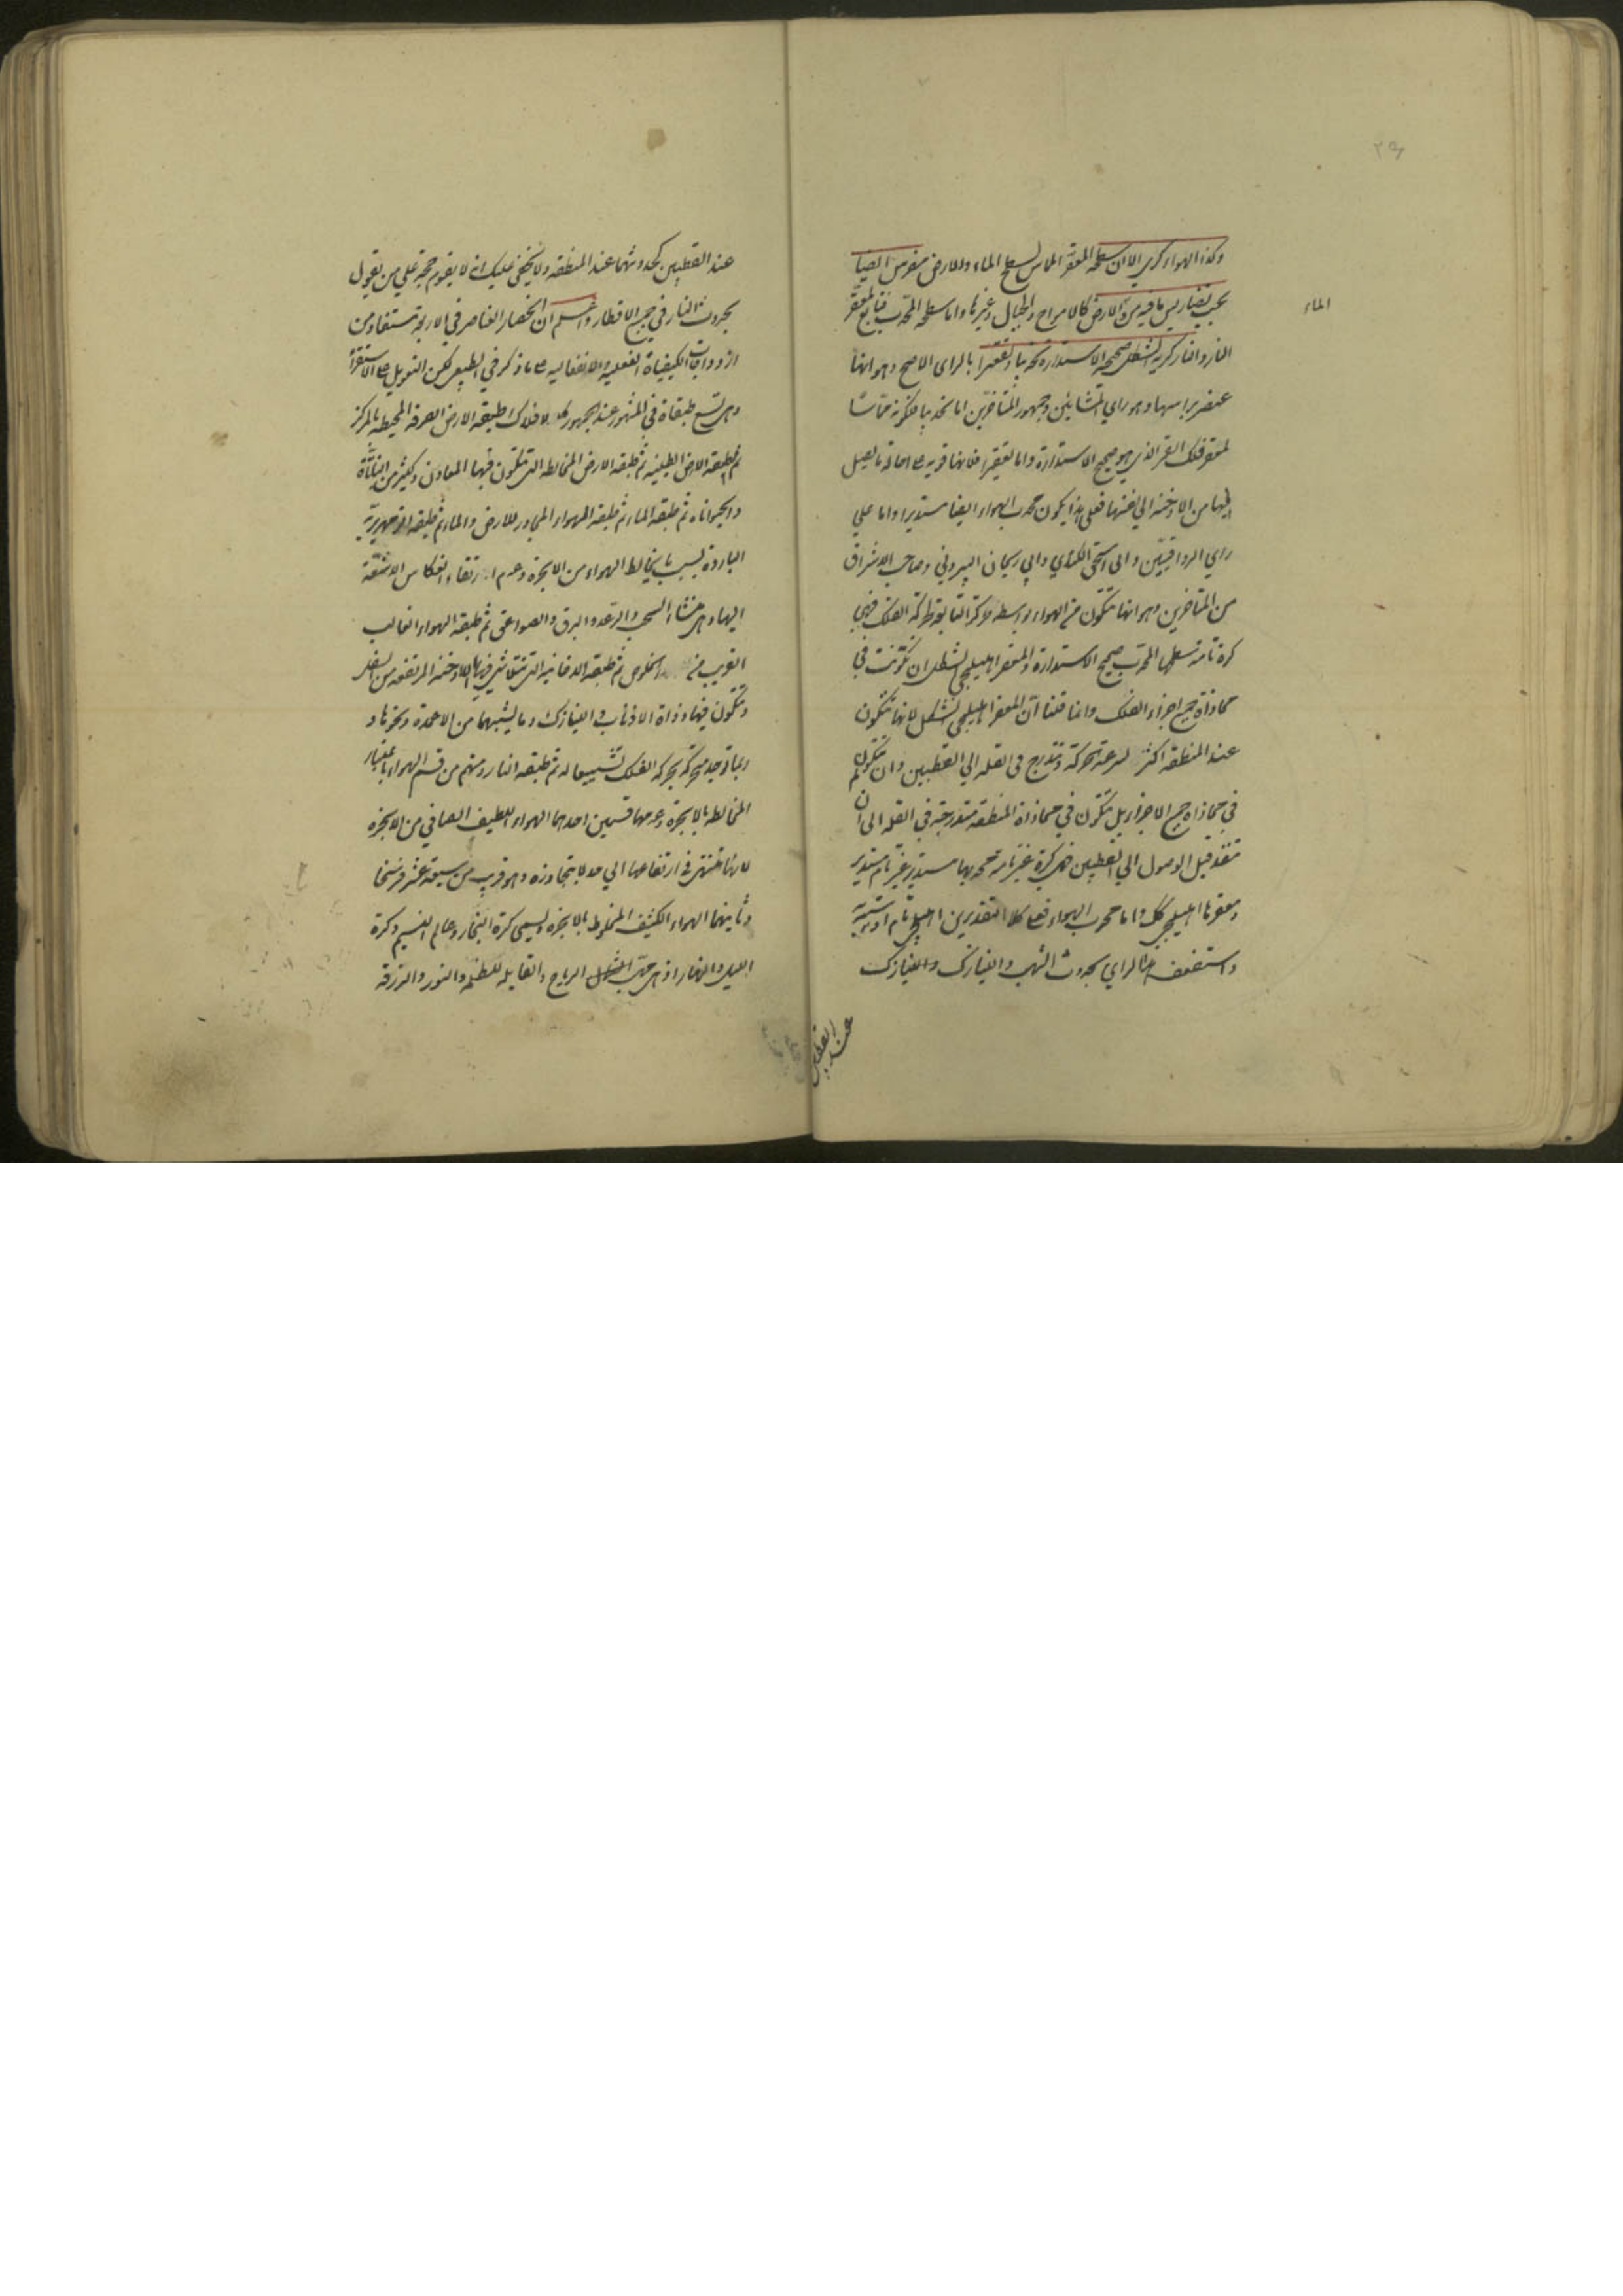 وكذا الهواء كري الا ان سطحه المقعر المماس لسطح الماء والارض مضرس ايضا
بحسب تضاريس ما فيه من الارض كالامواج والجبال وغيرها واما سطحه المحدب فتابع لمقعر
الماء
النار والنار كرية الشكل صحيحة الاستدارة تحديبا وتقعيرا بالراى الاصح وهو انها
عنصر براسها وهو راي المشائين وجمهور المتاخرين اما تحديبا فلكونه مماسا
لمقعر فلك القمر الذي هو صحيح الاستدارة واما تقعيرا فلانها قوية على احالة ما يصل
اليها من الادخنة الي نفسها فعلي هذا يكون محدب الهواء ايضا مستديرا واما علي
راي الرواقيين وابى اسحق الكندي وابي ريحان البيروني وصاحب الاشراق
من المتاخرين وهو انها تتكون من الهواء بواسطة حركته التابعة لحركة الفلك فهي
كرة تامة سطحها المحدب صحيح الاستدارة والمقعر اهليلجي الشكل ان تكونت في
محاذاة جميع اجزاء الفلك وانما قلنا ان المقعر اهليلجي الشكل لانها تتكون
عند المنطقة اكثر لسرعة الحركة وتتدرج في القلة الي القطبين وان لم تتكون
في محاذاة جميع الاجزاء بل تتكون في محاذاة المنطقة متدرجة في القلة الى ان
تنفد قبل الوصول الي القطبين فهي كرة غير تامة محدبها مستدير غير تام مستدير
ومقعرها اهليلجي كك واما محدب الهواء فعلى كلا التقديرين اهليلجي تام
واستضعف هذا الراي بحدوث الشهب والنيازك والنيازك
عند القطبين
عند القطبين كحدوثهما عند المنطقة ولا يخفى عليك انه لا يقوم حجة علي من يقول
بحدوث النار في جميع الاقطار واعلم ان انحصار العناصر في الاربعة مستفاد من
ازدواجات الكيفيات الفعلية والانفعالية على ما ذكر في الطبيعي لكن التعويل على الاستقراء
وهي تسع طبقات في المشهور عند الجمهور كالافلاك طبقة الارض الصرفة المحيطة بالمركز
ثم طبقة الارض الطينية ثم طبقة الارض المخالطة التي تتكون فيها المعادن وكثير من النباتات
والحيوانات ثم طبقة الماء ثم طبقة الهواء المجاور للارض والماء ثم طبقة الزمهريرية
الباردة بسبب ما يخالط الهواء من الابخرة وعدم ارتقاء انعكاس الاشعة
اليها وهي منشاء السحب والرعد والبرق والصواعق ثم طبقة الهواء الغالب
القريب من الخلوص ثم طبقة الدخانية التي تتلاشى فيها الادخنة المرتفعة من السفل
وتتكون فيها ذوات الاذناب والنيازك وما يشبههما من الاعمدة ونحوها و
ربما توجد متحركة بحركة الفلك تشييعا له ثم طبقة النار ومنهم من قسم الهواء باعتبار
المخالطة بالابخرة وعدمها قسمين احدهما الهواء اللطيف الصافي من الابخرة
لانها تنتهي في ارتفاعها الي حد لا يتجاوزه وهو قريب من سبعة عشر فرسخا
وثانيهما الهواء الكثيف المخلوط بالابخرة ويسمى كرة البخار وعالم النسيم وكرة
الليل والنهار اذ هي مهب الرياح والقابلة للظلمة والنور والزرقة